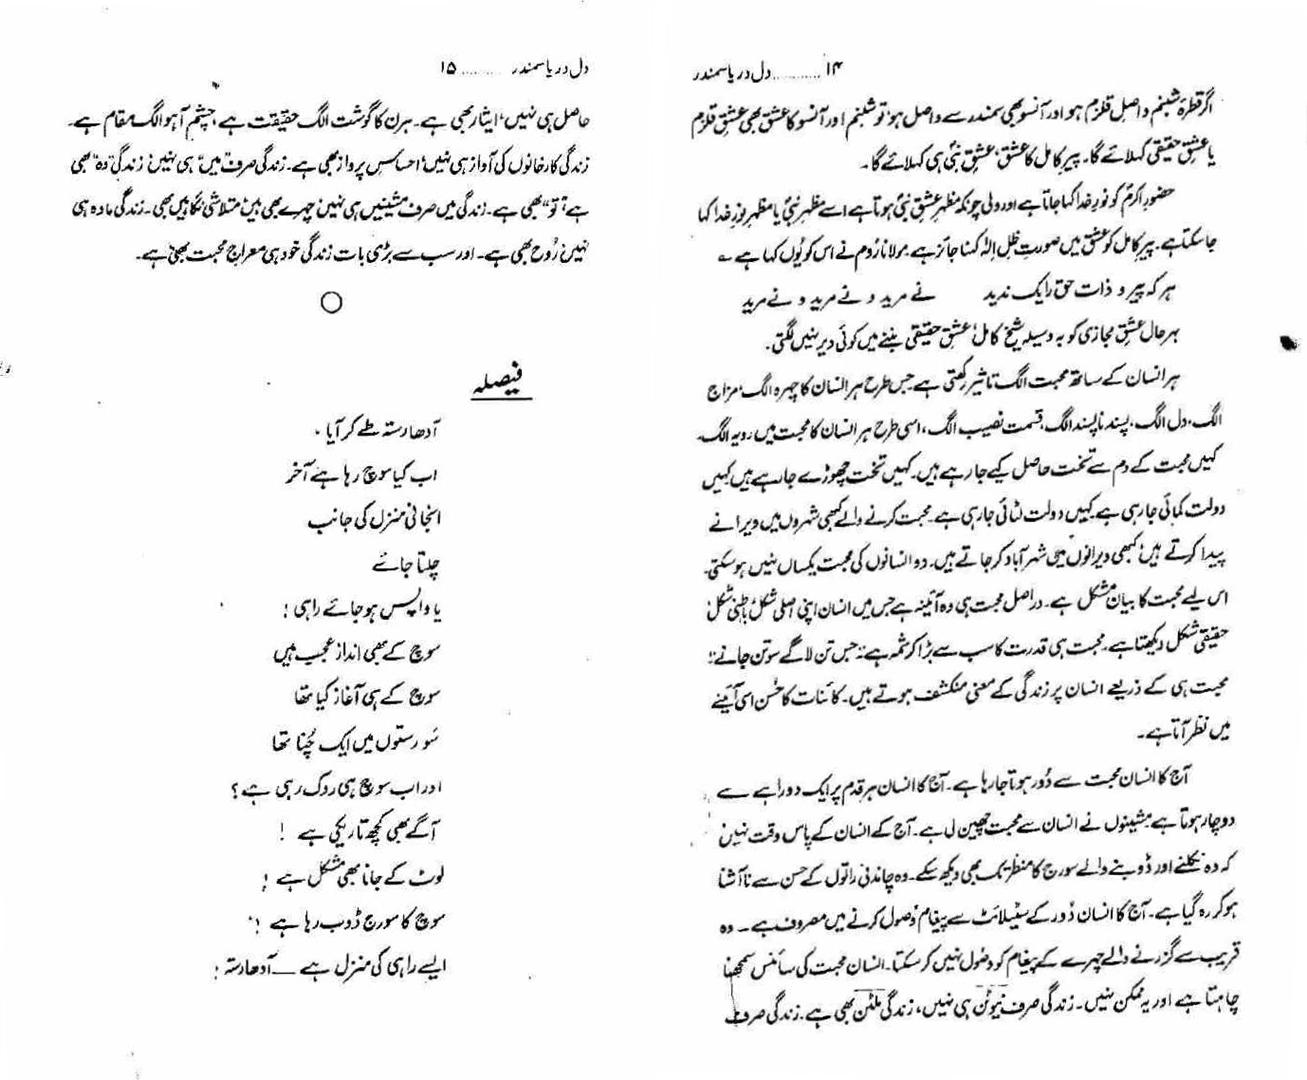 ۱۴ ........... دل دریا سمندر
اگر قطرۂ شبنم واصلِ قلزم ہو اور آنسو بھی سمندر سے واصل ہو، تو شبنم اور آنسو کا عشق بھی عشقِ قلزم
یا عشقِ حقیقی کہلائے گا۔ پیرِ کامل کا عشق، عشقِ نبیؐ ہی کہلائے گا۔
حضورِ اکرمؐ کو نورِ خدا کہا جاتا ہے اور ولی چونکہ مظہرِ عشقِ نبیؐ ہوتا ہے اسے مظہرِ نبیؐ یا مظہرِ نورِ خدا کہا
جا سکتا ہے۔ پیرِ کامل کو عشق میں صورتِ ظلِ الٰہ کہنا جائز ہے۔ مولانا رُوم نے اس کو یُوں کہا ہے ؎
ہر کہ پیر و ذات حق را یک ندید نے مرید و نے مرید و نے مرید
بہرحال عشقِ مجازی کو بہ وسیلہ شیخِ کامل، عشقِ حقیقی بننے میں کوئی دیر نہیں لگتی۔
ہر انسان کے ساتھ محبت الگ تاثیر رکھتی ہے جس طرح ہر انسان کا چہرہ الگ، مزاج
الگ، دل الگ، پسند نا پسند الگ، قسمت نصیب الگ، اسی طرح ہر انسان کا محبت میں رویہ الگ۔
کہیں محبت کے دم سے تخت حاصل کیے جا رہے ہیں۔ کہیں تخت چھوڑے جا رہے ہیں کہیں
دولت کمائی جا رہی ہے۔ کہیں دولت لٹائی جا رہی ہے۔ محبت کرنے والے کبھی شہروں میں ویرانے
پیدا کرتے ہیں، کبھی ویرانوں میں شہر آباد کر جاتے ہیں۔ دو انسانوں کی محبت یکساں نہیں ہو سکتی۔
اس لیے محبت کا بیان مشکل ہے۔ دراصل محبت ہی وہ آئینہ ہے جس میں انسان اپنی اصلی شکل، باطنی شکل،
حقیقی شکل دیکھتا ہے۔ محبت ہی قدرت کا سب سے بڑا کرشمہ ہے: جس تن لاگے سو تن جانے:
محبت ہی کے ذریعے انسان پر زندگی کے معنی منکشف ہوتے ہیں۔ کائنات کا حُسن اسی آئینے
میں نظر آتا ہے۔
آج کا انسان محبت سے دُور ہوتا جا رہا ہے۔ آج کا انسان ہر قدم پر ایک دوراہے سے
دوچار ہوتا ہے مشینوں نے انسان سے محبت چھین لی ہے۔ آج کے انسان کے پاس وقت نہیں
کہ وہ نکلنے اور ڈوبنے والے سورج کا منظر تک بھی دیکھ سکے۔ وہ چاندنی راتوں کے حسن سے نا آشنا
ہو کر رہ گیا ہے۔ آج کا انسان دُور کے سٹیلائٹ سے پیغام وُصول کرنے میں مصروف ہے ۔ وہ
قریب سے گزرنے والے چہرے کے پیغام کو وصُول نہیں کر سکتا۔ انسان محبت کی سائنس سمجھنا
چاہتا ہے اور یہ ممکن نہیں۔ زندگی صرف نیوٹن ہی نہیں، زندگی ملٹن بھی ہے۔ زندگی صرف
دل دریا سمندر ........ ۱۵
حاصل ہی نہیں، ایثار بھی ہے۔ ہرن کا گوشت الگ حقیقت ہے، چشمِ آہو الگ مقام ہے۔
زندگی کارخانوں کی آواز ہی نہیں، احساسِ پرواز بھی ہے۔ زندگی صرف "میں" ہی نہیں، زندگی "وہ" بھی
ہے، "تو" بھی ہے۔ زندگی میں صرف مشینیں ہی نہیں، چہرے بھی ہیں، متلاشی نگاہیں بھی۔ زندگی مادہ ہی
نہیں رُوح بھی ہے ۔ اور سب سے بڑی بات زندگی خود ہی معراجِ محبت بھی ہے۔
فیصلہ
آدھا رستہ طے کر آیا ۔
اب کیا سوچ رہا ہے آخر
انجانی منزل کی جانب
چلتا جائے
یا واپس ہو جائے راہی !
سوچ کے بھی انداز عجب ہیں
سوچ کے ہی آغاز کیا تھا
سَو رستوں میں ایک چُنا تھا
اور اب سوچ ہی روک رہی ہے ؟
آگے بھی کچھ تاریکی ہے !
لوٹ کے جانا بھی مشکل ہے !
سوچ کا سورج ڈوب رہا ہے !
ایسے راہی کی منزل ہے ــ آدھا رستہ !